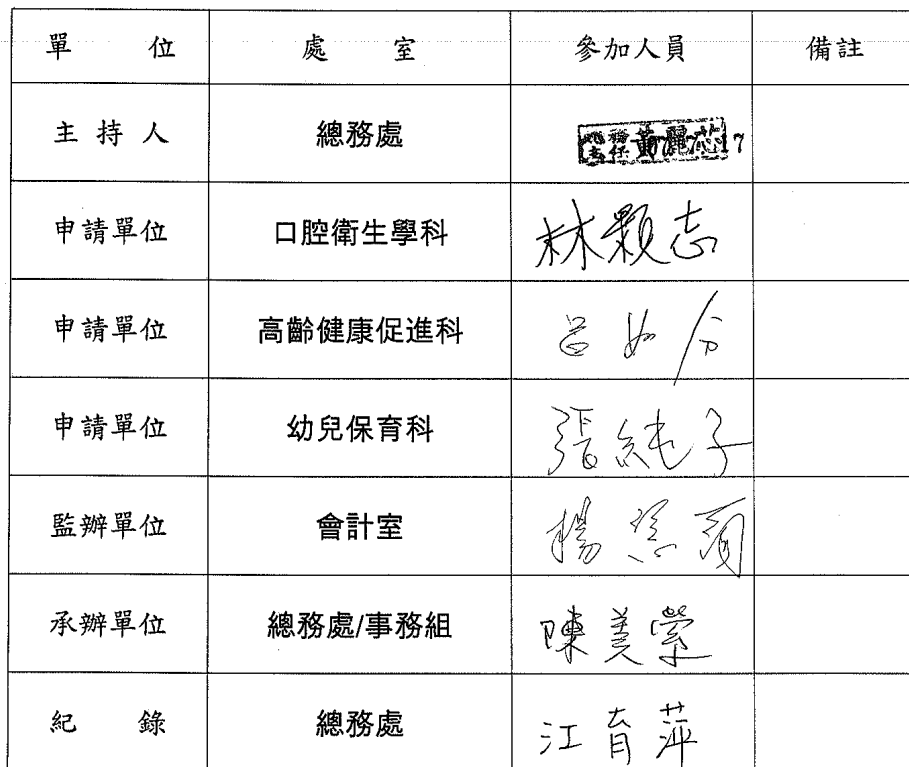 單 位 處 室 參加人員 備註
主 持 人 總務處
申請單位 口腔衛生學科 林顆志
申請單位 高齡健康促進科 呂如分
申請單位 幼兒保育科 張純子
監辦單位 會計室 楊
承辦單位 總務處/事務組 陳美縈
紀 錄 總務處 江育萍